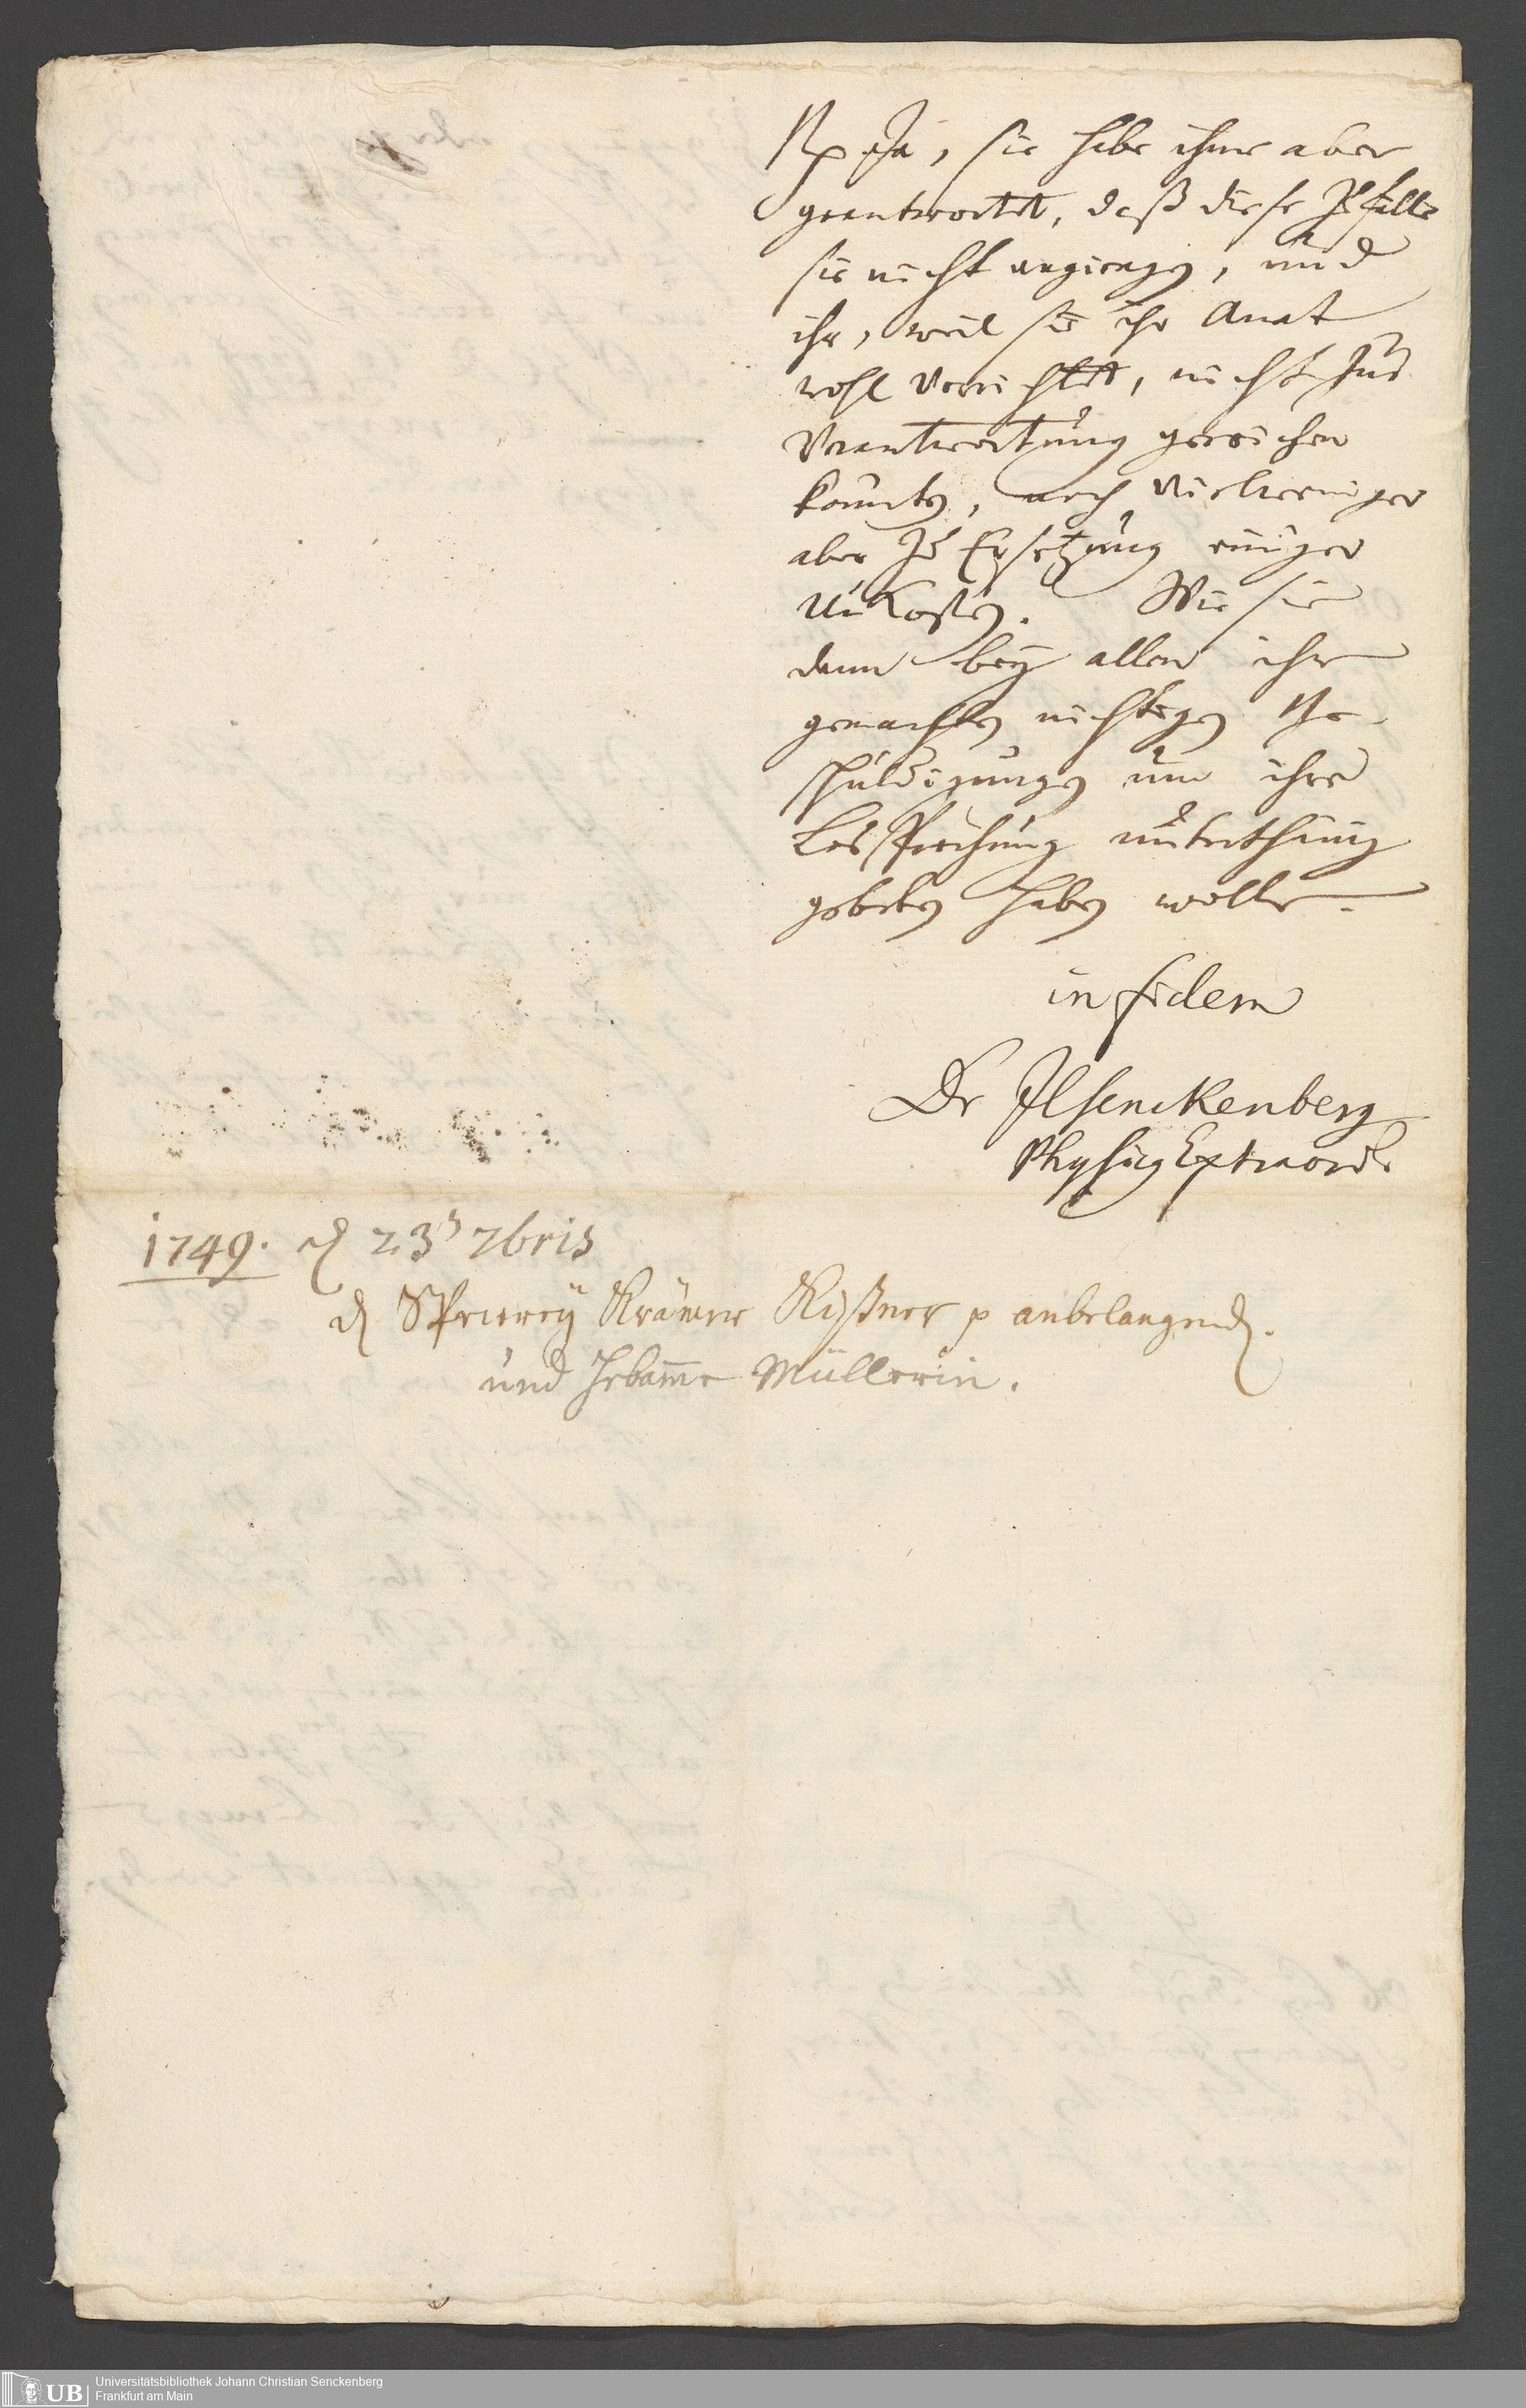 Rp Ja, sie habe ihme aber
geantwortet, daß diese Zufälle
sie nicht angiengen, und
ihr, weil sie ihr Ambt
wohl verrichtet, nicht zur
Verantwortung gereichen
könnten, noch vielweniger
aber zu Ersetzung einiger
Unkosten. Wie sie
dann bey allen ihr
gemachten nichtigen Be-
schuldigungen um ihre
Lossprechung unterthänig
gebeten haben wolle.
in fidem
Dr Senckenberg
Physicus Extraord.
1749. d 23 7bris
d Specerey Krämer Kißner p anbelangend.
und Hebamme Müllerin.
Universitätsbibliothek Johann Christian Senckenberg
Frankfurt am Main
UB